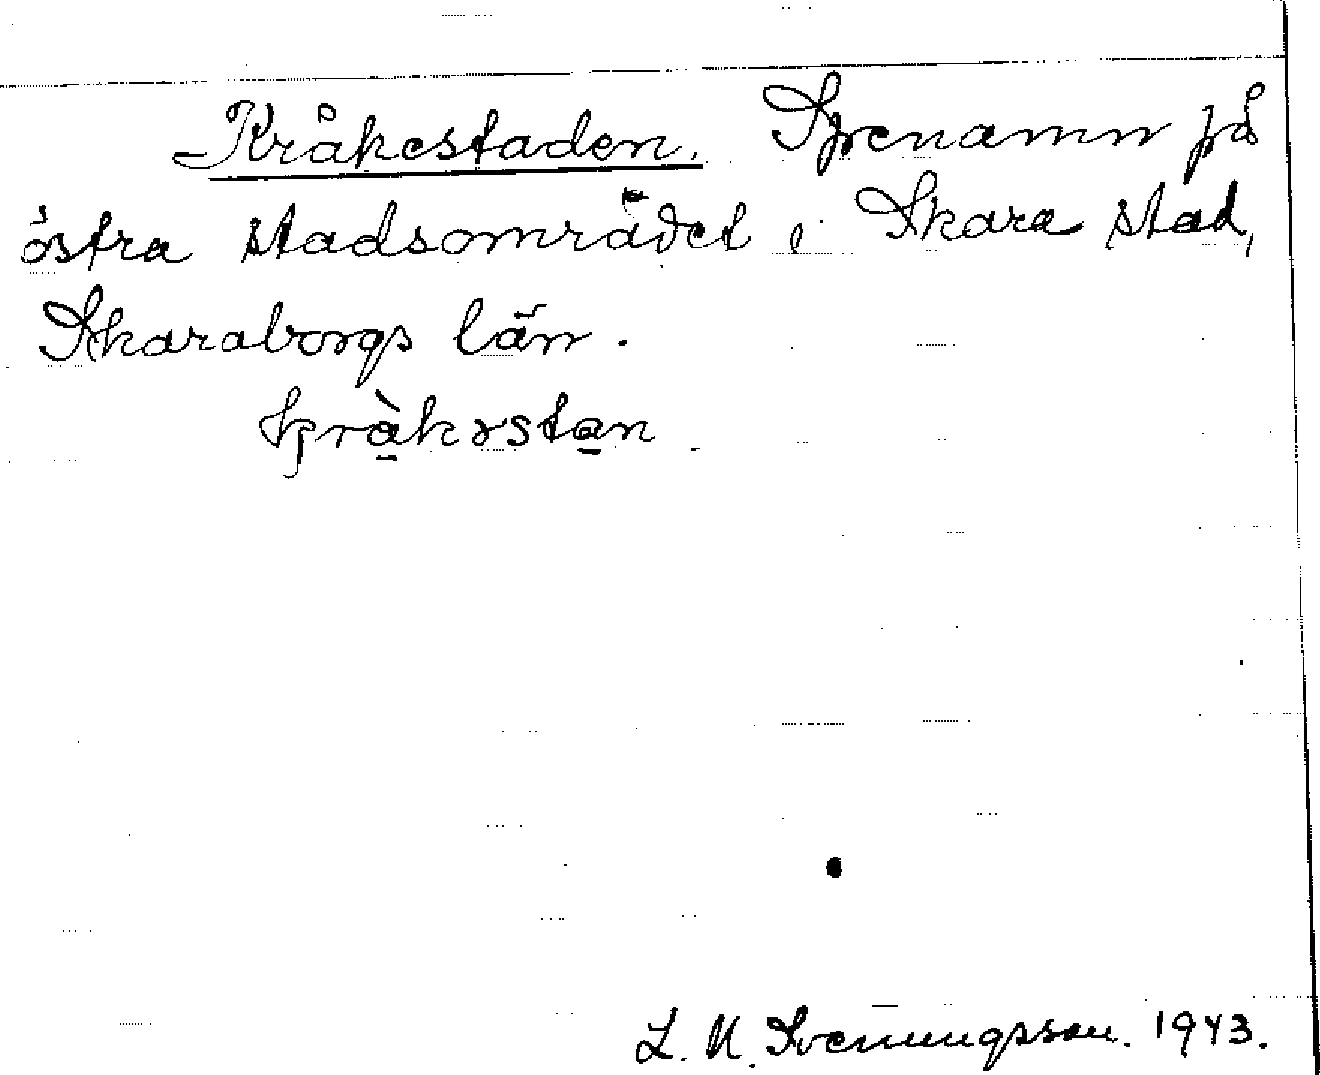 Kråkestaden. Öpenamn på
östra stadsområdet i Skara stad,
Skaraborgs län.
krå̀kɤstan
L. N. Svenungsson. 1943.